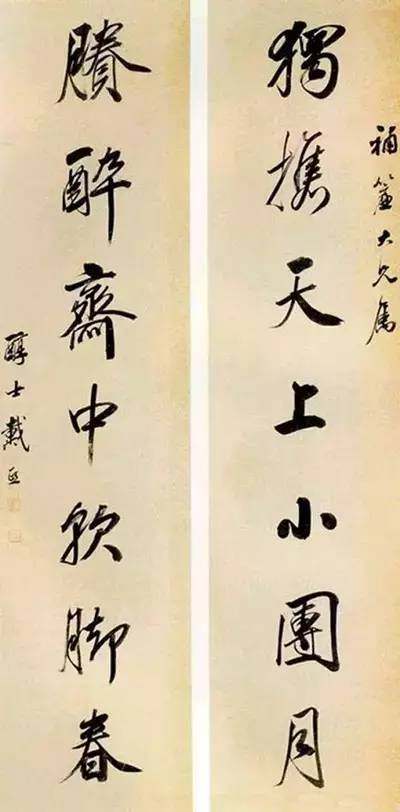 大兄屬
獨攜天上小團月
賸醉齋中軟脚春
醇士戴熙